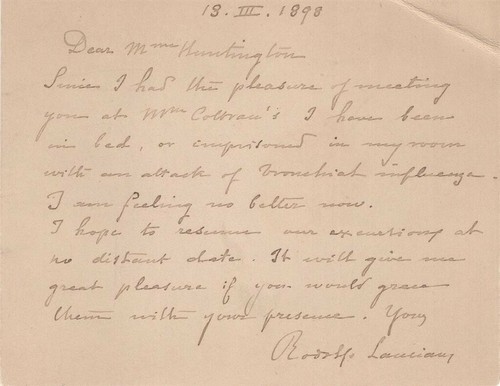 13.III.1898
Dear Mme Huntington
Since I had the pleasure of meeting
you at Mme Coltrau's I have been
in bed, or imprisoned in my room
with an attack of bronchial influenza.
I am feeling no better now.
I hope to resume our excursions at
no distant date. It will give me
great pleasure if you would grace
them with your presence. Yours
Rodolfo Lanciani